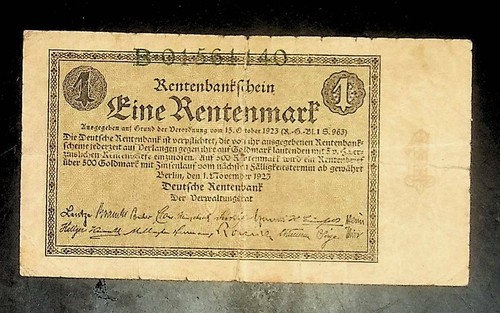 B 01561140
Rentenbankschein
1 Eine Rentenmark 1
Ausgegeben auf Grund der Verordnung vom 15. Oktober 1923 (R.-G.-Bl. I S. 963)
Die Deutsche Rentenbank ist verpflichtet, die von ihr ausgegebenen Rentenbank-
scheine jederzeit auf Verlangen gegen ihre auf Goldmark lautenden mit 5 v. H. ver-
zinslichen Rentenbriefe einzulösen. Auf 500 Rentenmark wird ein Rentenbrief
über 500 Goldmark mit Zinsenlauf vom nächsten Fälligkeitstermin ab gewährt
Berlin, den 1. November 1923
Deutsche Rentenbank
Der Verwaltungsrat